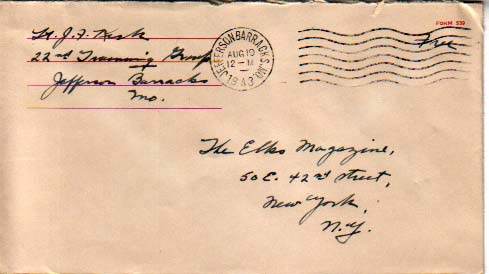 FORM 539
Free
Lt. J. F. Kish
22nd Training Group
Jefferson Barracks
Mo.
JEFFERSON BARRACKS, MO.
AUG 19
12 – M
1943
The Elks Magazine,
50 E. 42nd Street,
New York,
N.Y.